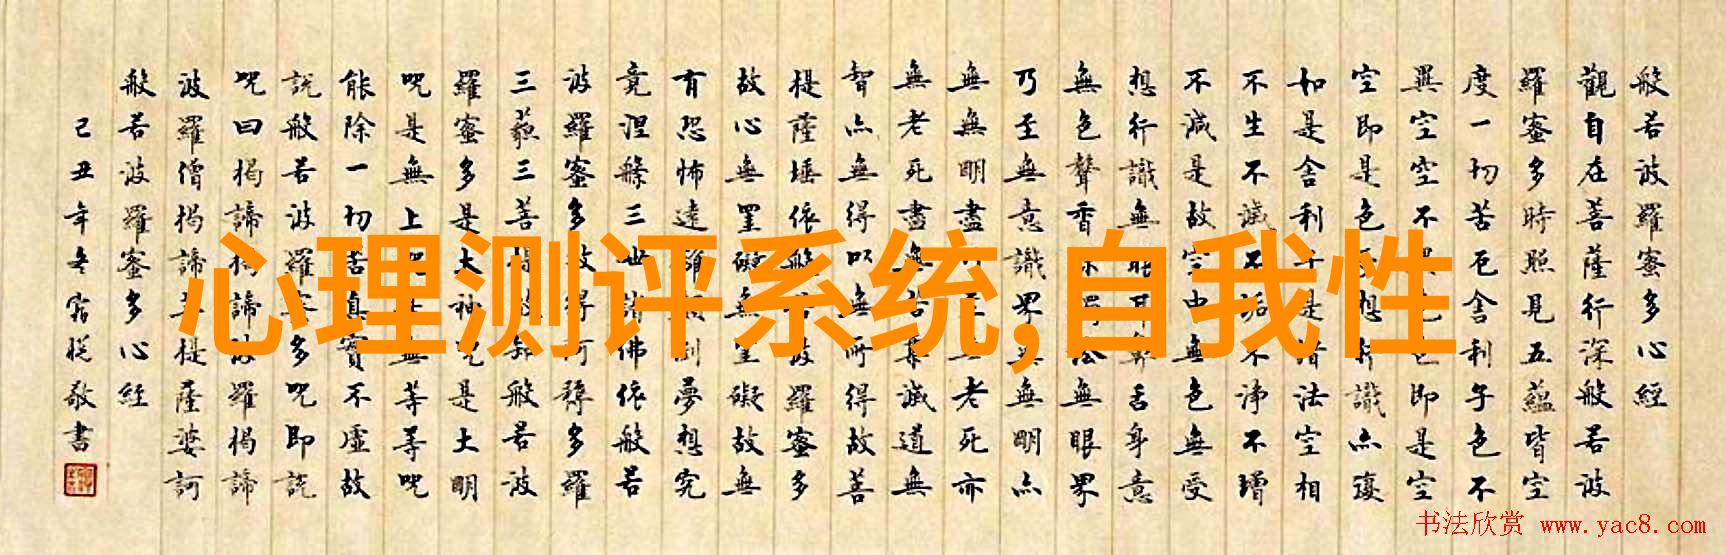 般若波羅蜜多心經
觀自在菩薩行深般若波
羅蜜多時照見五蘊皆空
度一切苦厄舍利子色不
異空空不異色色即是空
空即是色受想行識亦復
如是舍利子是諸法空相
不生不滅不垢不淨不增
不減是故空中無色無受
想行識無眼耳鼻舌身意
無色聲香味觸法無眼界
乃至無意識界無無明亦
無無明盡乃至無老死亦
無老死盡無苦集滅道無
智亦無得以無所得故菩
提薩埵依般若波羅蜜多
故心無罣礙無罣礙故無
有恐怖遠離顛倒夢想究
竟涅槃三世諸佛依般若
波羅蜜多故得阿耨多羅
三藐三菩提故知般若波
羅蜜多是大神咒是大明
咒是無上咒是無等等咒
能除一切苦真實不虛故
說般若波羅蜜多咒即說
咒曰揭諦揭諦波羅揭諦
波羅僧揭諦菩提薩婆訶
般若波羅蜜多心經
己丑年冬敬書
心理测评系统,自我性
书法欣赏 www.yac8.com